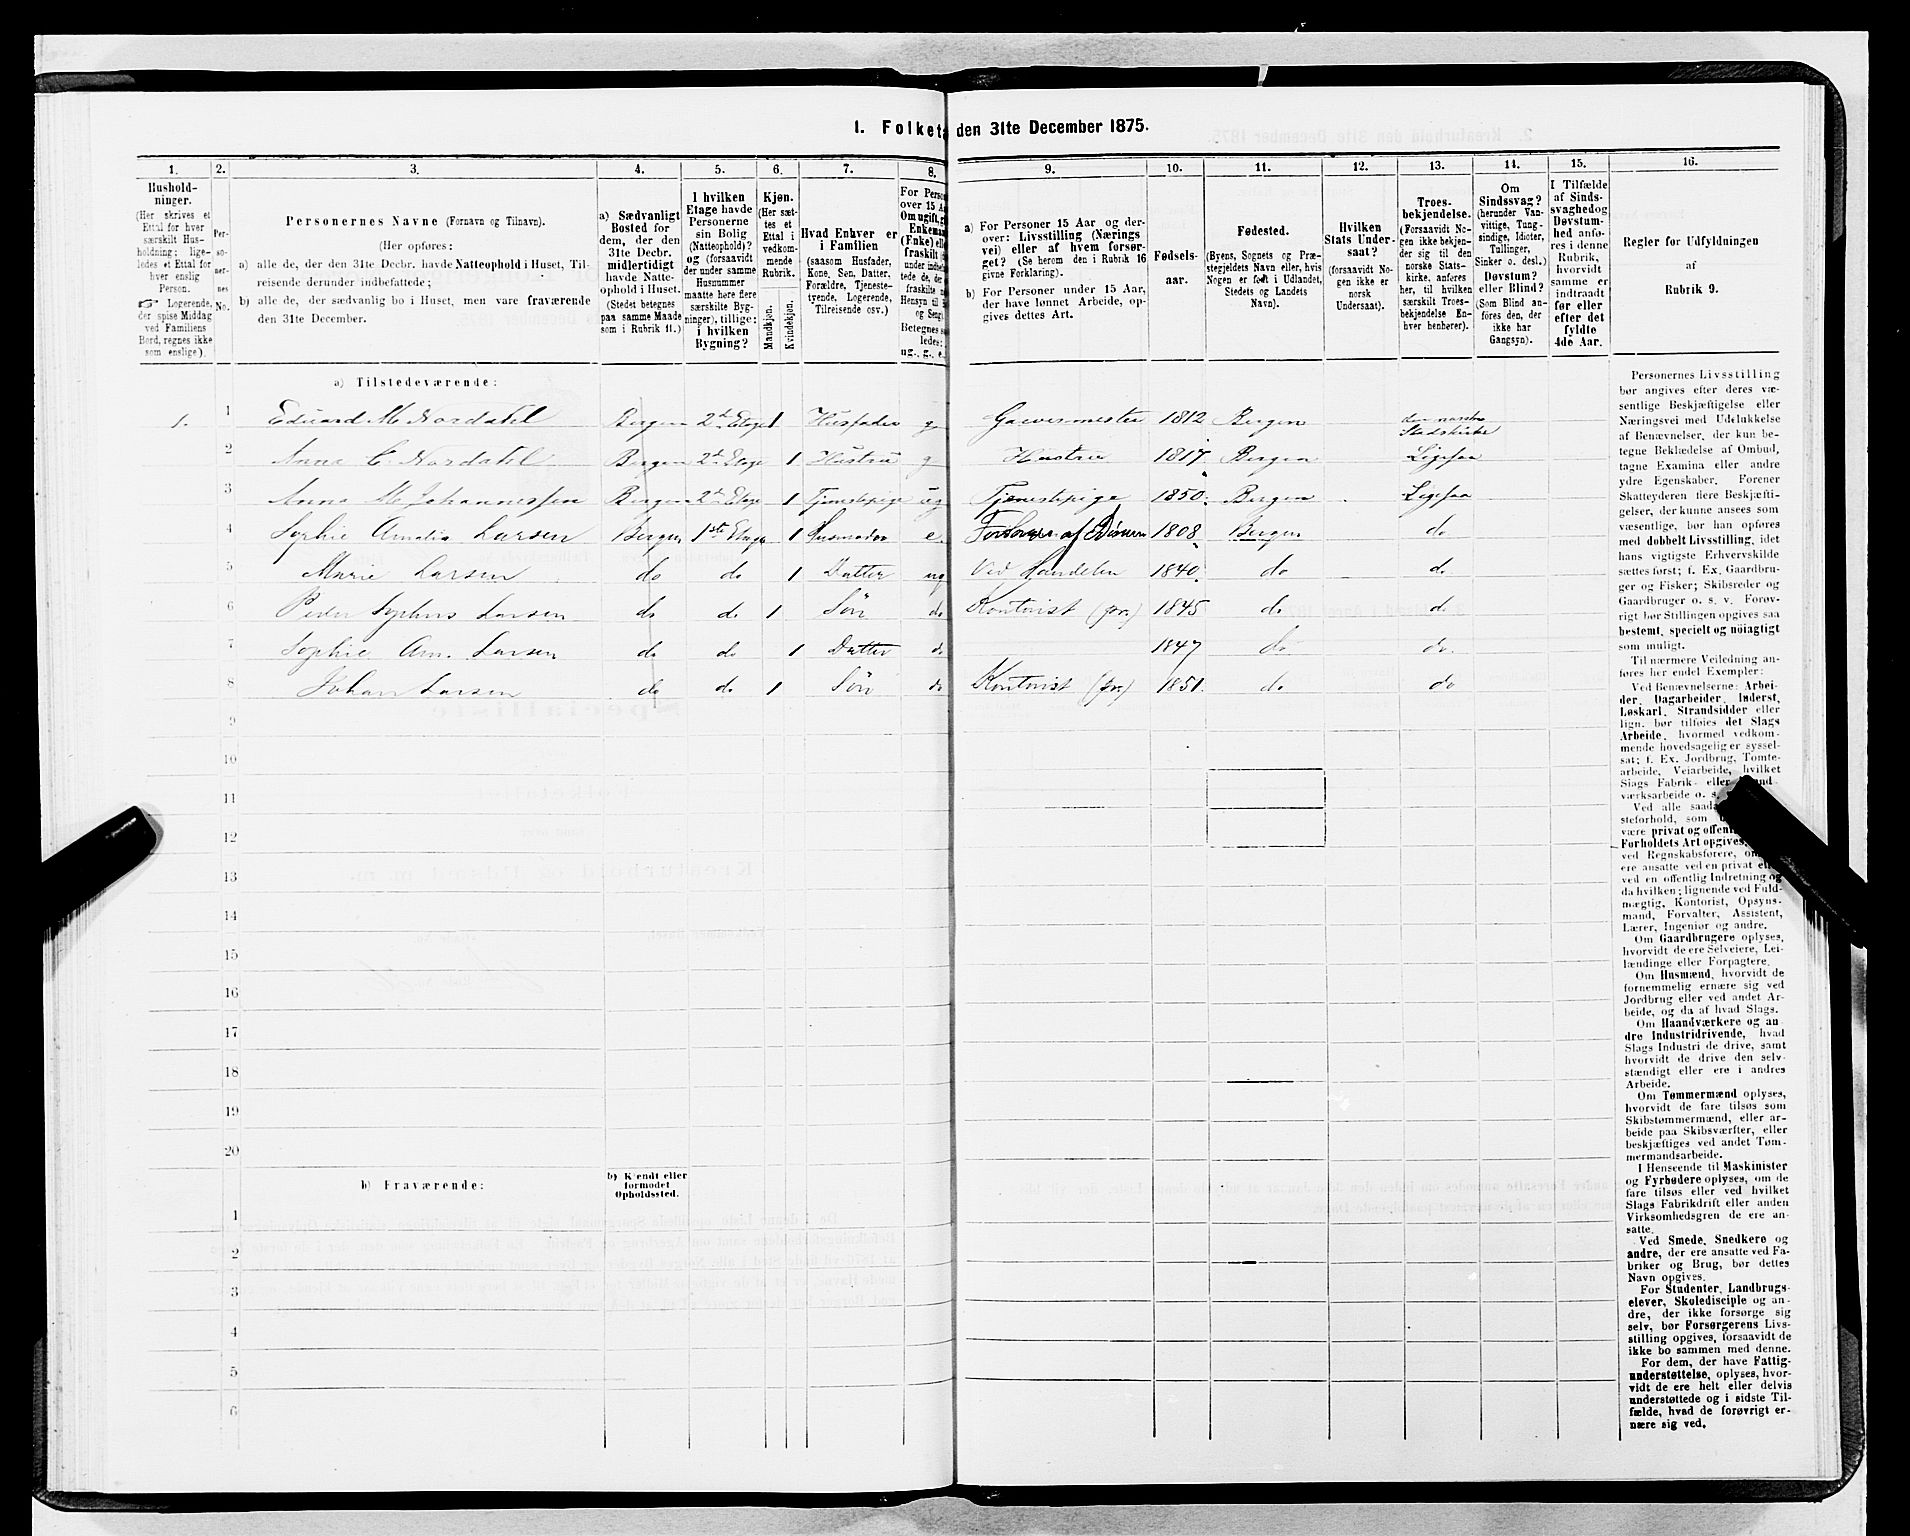 1. Folketa den 31te December 1875.
1. 2. 3. 4. 5. 6. 7. 8. 9. 10. 11. 12. 13. 14. 15. 16.
Hushold-
ninger.
(Her skrives et
Ettal for hver
særskilt Hus-
holdning; lige-
ledes et Ettal for
hver enslig
Person.
☞ Logerende,
der spise Middag
ved Familiens
Bord, regnes ikke
som enslige).
Per-
so-
ner-
nes
No.
Personernes Navne (Fornavn og Tilnavn).
(Her opføres:
a) alle de, der den 31te Decbr. havde Natteophold i Huset, Til-
reisende derunder indbefattede;
b) alle de, der sædvanlig bo i Huset, men vare fraværende
den 31te December.
a) Sædvanligt
Bosted for
dem, der den
31te Decbr.
midlertidigt
havde Natte-
ophold i Huset.
(Stedet betegnes
paa samme Maade
som i Rubrik 11.)
I hvilken
Etage havde
Personerne
sin Bolig
(Natteophold)?
og (forsaavidt
der under samme
Husnummer
maatte høre flere
særskilte Byg-
ninger), tillige:
i hvilken
Bygning?
Kjøn.
(Her sæt-
tes et
Ettal i
vedkom-
mende
Rubrik.
Mandkjøn.
Kvindekjøn.
Hvad Enhver er
i Familien
(saasom Husfader,
Kone, Søn, Datter,
Forældre, Tjeneste-
tyende, Logerende,
Tilreisende osv.)
For Perso
over 15 A
Om ugift, g
Enkeman
(Enke) elle
fraskilt
under indbef
tede de, der
fraskilte
Hensyn til
og Seng.
Betegnes s
ledes:
ug., g., e.
a) For Personer 15 Aar og der-
over: Livsstilling (Nærings
vei) eller af hvem forsør-
get? (Se herom den i Rubrik 16
givne Forklaring).
b) For Personer under 15 Aar,
der have lønnet Arbeide, op-
gives dettes Art.
Fødsels-
aar.
Fødested.
(Byens, Sognets og Præ-
stegjeldets Navn eller, hvis
Nogen er født i Udlandet,
Stedets og Landets
Navn).
Hvilken
Stats Under-
saat?
(forsaavidt No-
gen ikke er
norsk
Undersaat).
Troes-
bekjendelse.
(Forsaavidt No-
gen ikke bekjen-
der sig til den
norske Stats-
kirke, anføres
her, til hvilken
særskilt Troes-
bekjendelse En-
hver henhører).
Om
Sindssvag?
(herunder Van-
vittige, Tung-
sindige, Idioter,
Tullinger,
Sinker o. desl.)
Døvstum?
eller Blind?
(Som Blind an-
føres den, der
ikke har
Gangsyn).
I Tilfælde
af Sinds-
svaghed og
Døvstum-
hed anfø-
res i denne
Rubrik,
hvorvidt
samme er
indtraadt
før eller
efter det
fyldte
4de Aar.
Regler for Udfyldningen
af
Rubrik 9.
a) Tilstedeværende:
1. 1 Eduard M. Nordahl Bergen 2d Etage 1 Husfader g Garvermester 1812 Bergen den norske Statskirke
2 Anna C. Nordahl Bergen 2d Etage 1 Hustru g Hustru 1817 Bergen Ligesaa
3 Anna M. Johannessen Bergen 2d Etage 1 Tjenestepige ug Tjenestepige 1850 Bergen Ligesaa
4 Sophie Amalia Larsen Bergen 1ste Etage 1 Husmoder e. af 1808 Bergen do
5 Marie Larsen do do 1 Datter ug Ved Handelen 1840 do do
6 Peder Sophus Larsen do do 1 Søn do Kontorist (pr.) 1845 do do
7 Sophie Am. Larsen do do 1 Datter do 1847 do do
8 Johan Larsen do do 1 Søn do Kontorist (pr.) 1851 do do
9
10
11
12
13
14
15
16
17
18
19
20
b) Fraværende:
b) Kjendt eller
formodet
Opholdssted.
1
2
3
4
5
6
Personernes Livsstilling
bør angives efter deres væ-
sentlige Beskjæftigelse eller
Næringsvei med Udelukkelse
af Benævnelser, der kun be-
tegne Beklædelse af Ombud,
tagne Examina eller andre
ydre Egenskaber. Forener
Skatteyderen flere Beskjæfti-
gelser, der kunne ansees som
væsentlige, bør han opføres
med dobbelt Livsstilling, idet
hans vigtigste Erhvervskilde
sættes først; f. Ex. Gaardbru-
ger og Fisker; Skibsreder og
Gaardbruger o. s. v. Forøv-
rigt bør Stillingen opgives saa
bestemt, specielt og nøiagtigt
som muligt.
Til nærmere Veiledning an-
føres her endel Exempler:
Ved Benævnelserne: Arbei-
der, Dagarbeider, Inderst,
Løskarl, Strandsidder eller
lign. bør tilføies det Slags
Arbeide, hvormed vedkom-
mende hovedsagelig er syssel-
sat; f. Ex. Jordbrug, Tomte-
arbeide, Veiarbeide, hvilket
Slags Fabrik- eller
værksarbeide o. s.
Ved alle
steforhold, som
være privat og
Forholdets Art opgives,
ved Regnskabsførere,
ere ansatte ved en privat
ved en offentlig Indretning og
da hvilken; lignende ved Fuld-
mægtig, Kontorist, Opsyns-
mand, Forvalter, Assistent,
Lærer, Ingeniør og andre.
Om Gaardbrugere oplyses,
hvorvidt de ere Selveiere, Lei-
lændinge eller Forpagtere.
Om Husmænd, hvorvidt de
fornemmelig ernære sig ved
Jordbrug eller ved andet Ar-
beide, og da af hvad Slags.
Om Haandværkere og an-
dre Industridrivende, hvad
Slags Industri de drive, samt
hvorvidt de drive den selv-
stændigt eller ere i andres
Arbeide.
Om Tømmermænd oplyses,
hvorvidt de fare tilsøs som
Skibstømmermænd, eller ar-
beide paa Skibsværfter, eller
beskjæftiges ved andet Tøm-
mermandsarbeide.
I Henseende til Maskinister
og Fyrbødere oplyses, om de
fare tilsøs eller ved hvilket
Slags Fabrikdrift eller anden
Virksomhedsgren de ere an-
satte.
Ved Smede, Snedkere og
andre, der ere ansatte ved Fa-
briker og Brug, bør dettes
Navn opgives.
For Studenter, Landbrugs-
elever, Skoledisciple og an-
dre, der ikke forsørge sig
selv, bør Forsørgerens Livs-
stilling opgives, forsaavidt de
ikke bo sammen med denne.
For dem, der have Fattig-
understøttelse, oplyses, hvor-
vidt de ere helt eller delvis
understøttede og i sidste Til-
fælde, hvad de forøvrigt er-
nære sig ved.